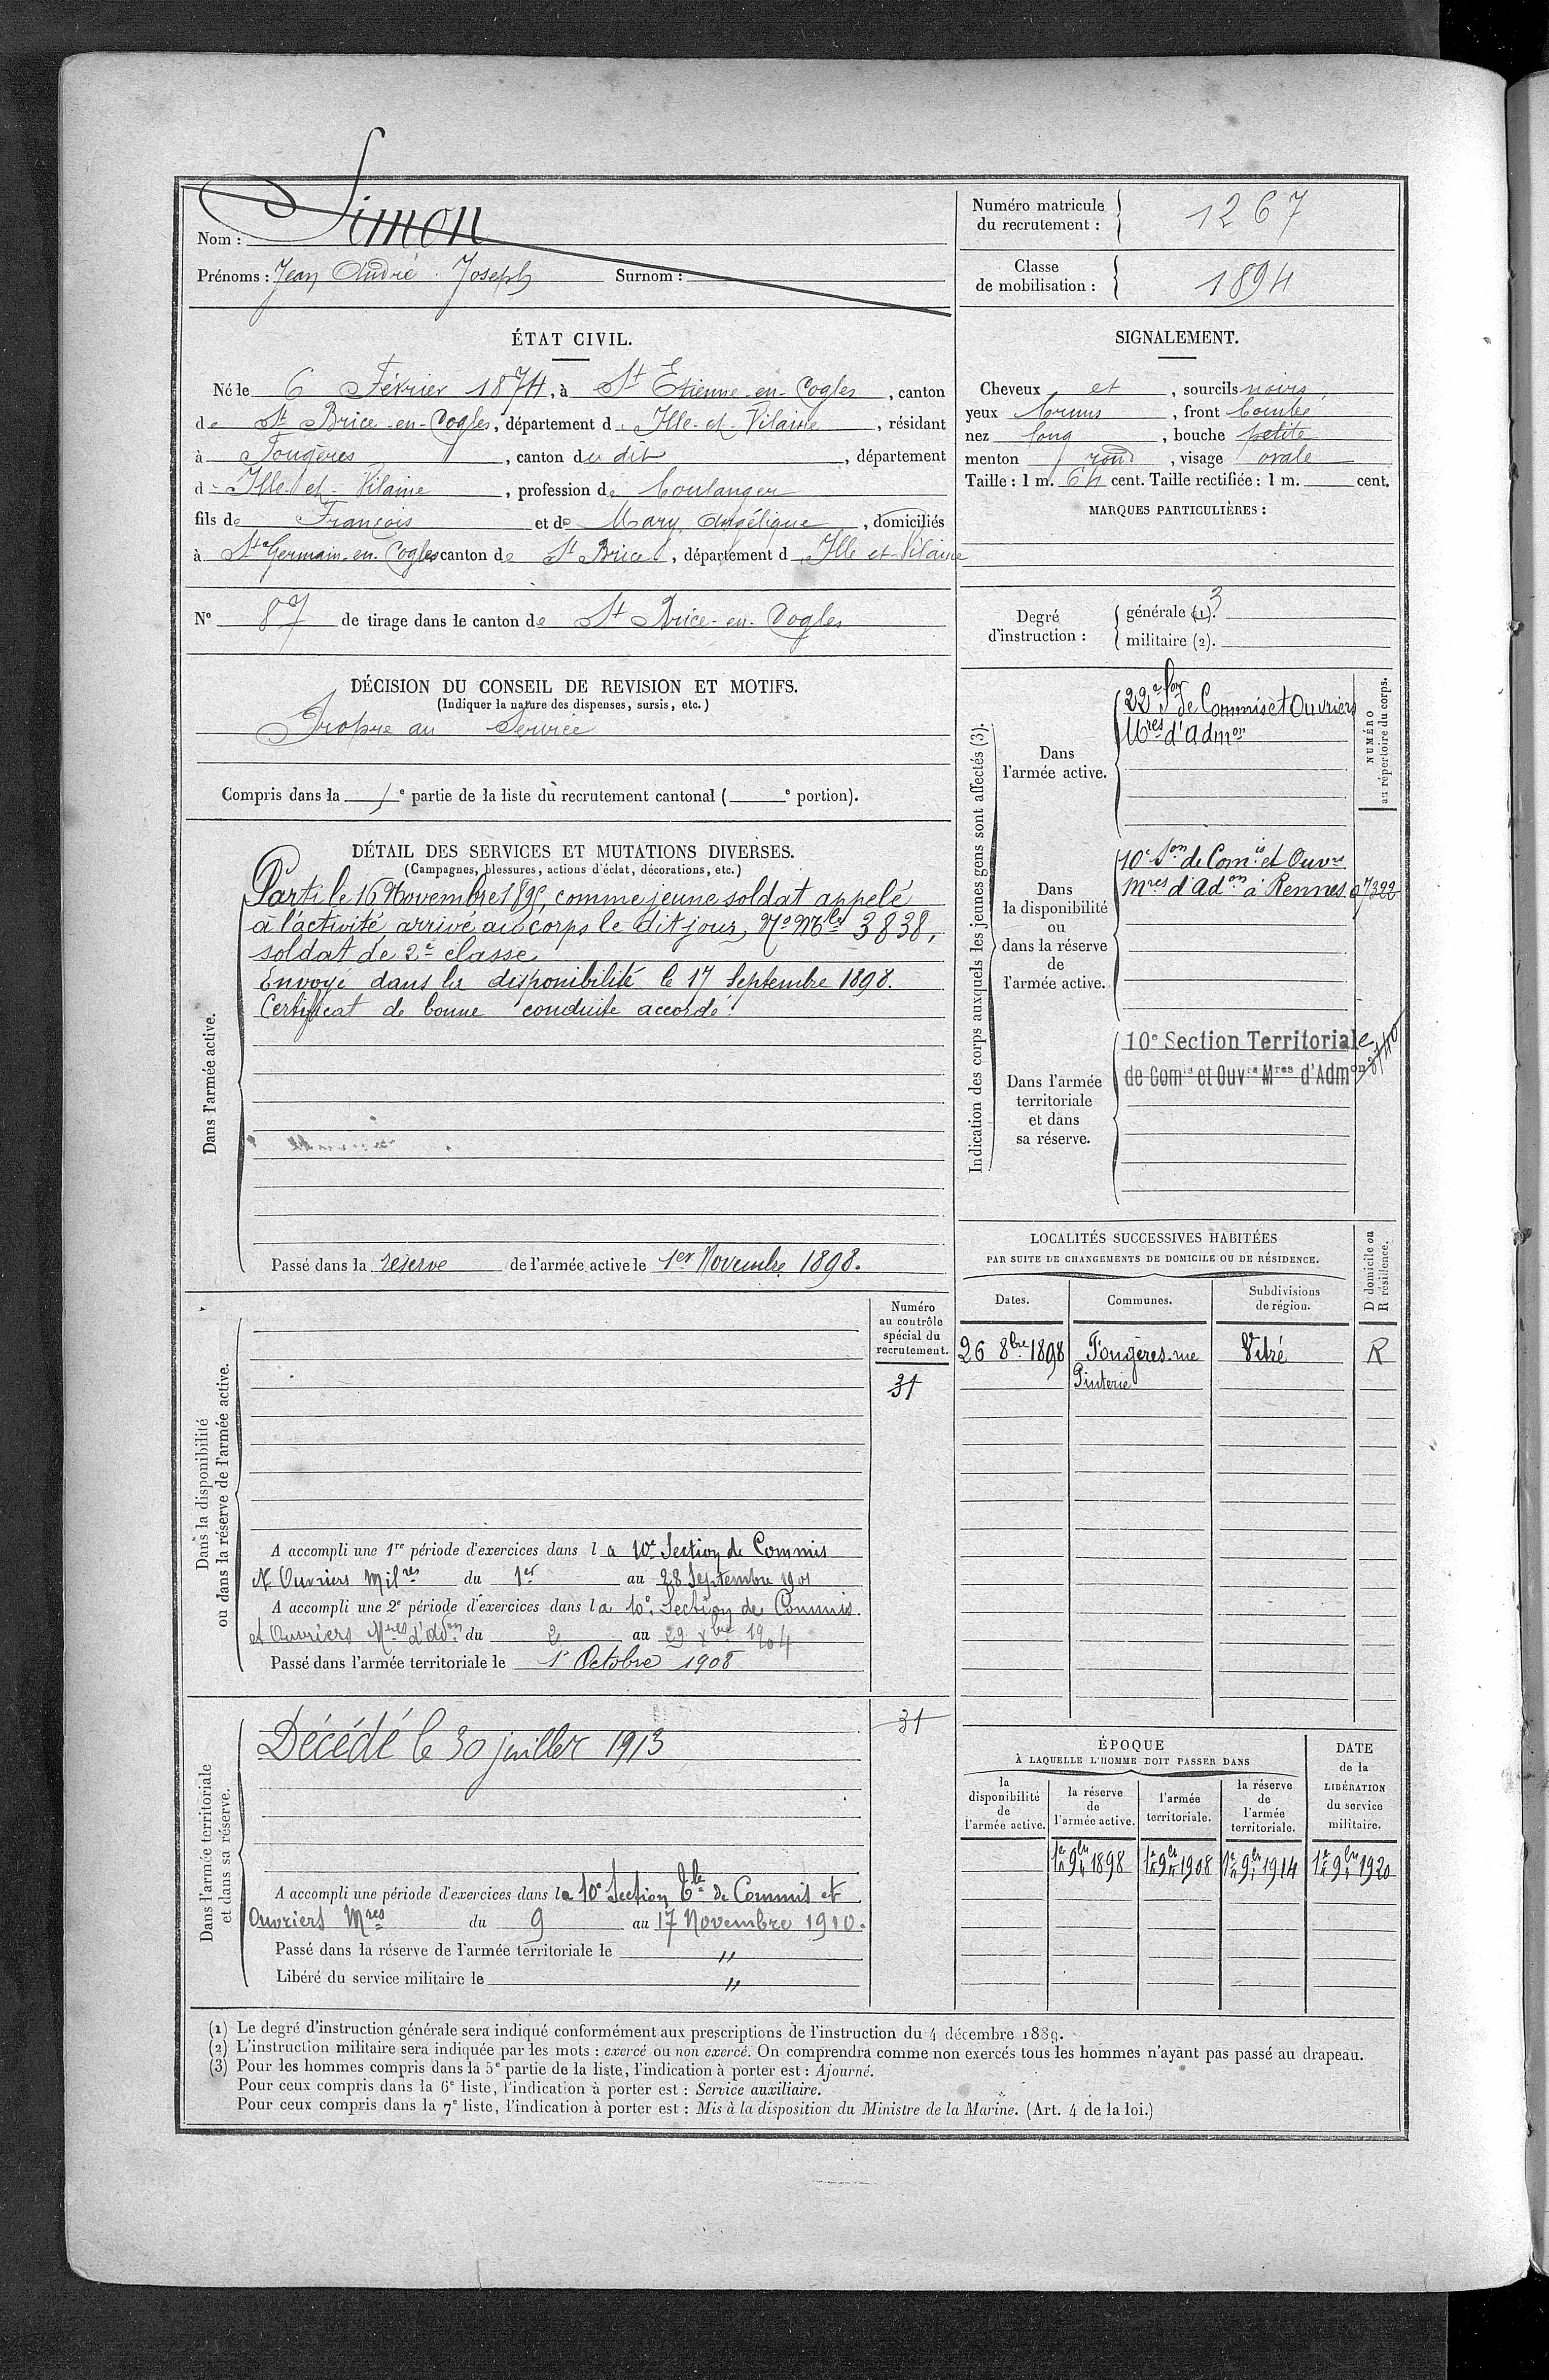 Nom : Simon
Prénoms : Jean André Joseph Surnom :
Numéro matricule du recrutement : 1267
Classe de mobilisation : 1894
ÉTAT CIVIL.
Né le 6 Février 1874, à St Etienne-en-Cogles, canton
de St Brice-en-Cogles, département d Ille-et-Vilaine, résidant
à Fougères, canton du dit, département
d Ille et Vilaine, profession de boulanger
fils de François et de Mary Angélique, domiciliés
à St Germain-en-Cogles canton de St Brice, département d Ille et Vilaine
N° 87 de tirage dans le canton de St Brice-en-Cogles
SIGNALEMENT.
Cheveux et, sourcils noirs
yeux bruns, front bombé
nez long, bouche petite
menton rond, visage ovale
Taille : 1 m. 64 cent. Taille rectifiée : 1 m. cent.
MARQUES PARTICULIÈRES :
Degré d'instruction : générale (1). 3
militaire (2).
DÉCISION DU CONSEIL DE REVISION ET MOTIFS.
(Indiquer la nature des dispenses, sursis, etc.)
Propre au Service
Compris dans la 1e partie de la liste du recrutement cantonal ( e portion).
DÉTAIL DES SERVICES ET MUTATIONS DIVERSES.
(Campagnes, blessures, actions d'éclat, décorations, etc.)
Dans l'armée active.
Parti le 16 Novembre 1895, comme jeune soldat appelé
à l'activité, arrivé au corps le dit jour, No Mle 3838,
soldat de 2e classe
Envoyé dans la disponibilité le 17 Septembre 1898.
Certificat de bonne conduite accordé
Passé dans la réserve de l'armée active le 1er Novembre 1898.
Indication des corps auxquels les jeunes gens sont affectés (3).
NUMÉRO au répertoire du corps.
Dans l'armée active.
22e Son de Commis et Ouvriers
Mres d'Admon
Dans la disponibilité ou dans la réserve de l'armée active.
10e Son de Comis et Ouvrs
Mres d'Adon à Rennes 07322
Dans l'armée territoriale et dans sa réserve.
10e Section Territoriale
de Comis et Ouvrs Mres d'Admon
LOCALITÉS SUCCESSIVES HABITÉES
PAR SUITE DE CHANGEMENTS DE DOMICILE OU DE RÉSIDENCE.
D domicile ou R résidence.
Dates. Communes. Subdivisions de région.
26 8bre 1898 Fougères rue Vitré R
Pinterie
Dans la disponibilité ou dans la réserve de l'armée active.
Numéro au contrôle spécial du recrutement.
31
A accompli une 1re période d'exercices dans la 10e Section de Commis
et Ouvriers Milres du 1er au 28 Septembre 1901
A accompli une 2e période d'exercices dans la 10e Section de Commis
et Ouvriers Mres d'Adon du 2 au 29 Xbre 1904
Passé dans l'armée territoriale le 1er Octobre 1908
Dans l'armée territoriale et dans sa réserve.
31
Décédé le 30 juillet 1913
A accompli une période d'exercices dans la 10e Section Tle de Commis et
Ouvriers Mres du 9 au 17 Novembre 1910.
Passé dans la réserve de l'armée territoriale le "
Libéré du service militaire le "
ÉPOQUE
À LAQUELLE L'HOMME DOIT PASSER DANS
la disponibilité de l'armée active. la réserve de l'armée active. l'armée territoriale. la réserve de l'armée territoriale.
DATE de la LIBÉRATION du service militaire.
1er 9bre 1898 1er 9bre 1908 1er 9bre 1914 1er 9bre 1920
(1) Le degré d'instruction générale sera indiqué conformément aux prescriptions de l'instruction du 4 décembre 1889.
(2) L'instruction militaire sera indiquée par les mots : exercé ou non exercé. On comprendra comme non exercés tous les hommes n'ayant pas passé au drapeau.
(3) Pour les hommes compris dans la 5e partie de la liste, l'indication à porter est : Ajourné.
Pour ceux compris dans la 6e liste, l'indication à porter est : Service auxiliaire.
Pour ceux compris dans la 7e liste, l'indication à porter est : Mis à la disposition du Ministre de la Marine. (Art. 4 de la loi.)